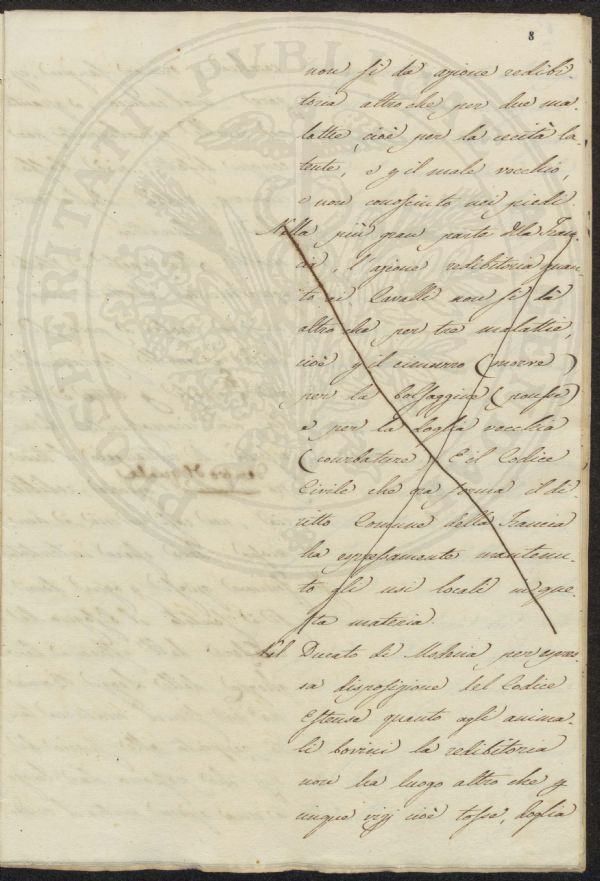 8
non si dà azione redibi-
toria altro che per due ma-
lattie, cioè per la cecità la-
tente, e p il male vecchio,
e non conosciuto noi piedi.
Nella più gran parte della Fran-
cia, l'azione redibitoria quan-
to ai Cavalli non si dà
altro che per tre malattie,
cioè p il cimurro (morve)
per la bolsaggine (pousse)
e per la doglia vecchia
(courbature) E il Codice
Civile che ora forma il di-
ritto Comune della Francia
ha espressamente mantenu-
to gli usi locali in que-
sta materia.
Nel Ducato di Modena per espres-
sa disposizione del Codice
Estense quanto agli anima-
li bovini la redibitoria
non ha luogo altro che p
cinque vizj cioè tosse, doglia
PROSPERITATI PUBLICAE